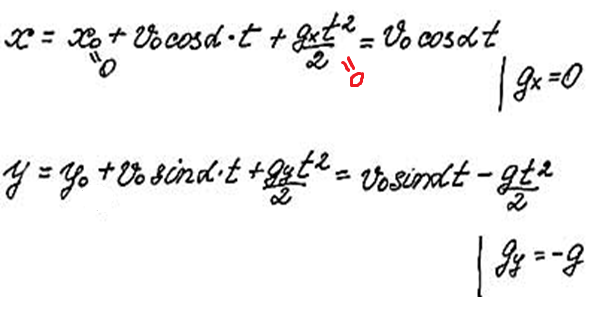 x = x₀ + v₀cosα·t + gₓt²/2 = v₀cosαt
=0 =0
| gₓ = 0
y = y₀ + v₀sinα·t + g_yt²/2 = v₀sinαt − gt²/2
| g_y = −g